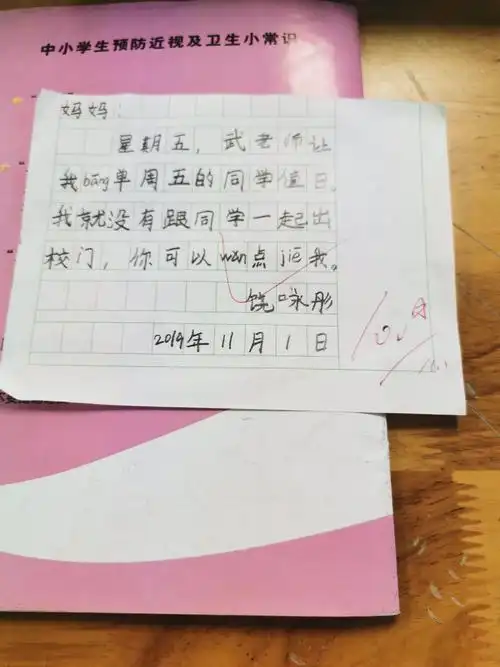 中小学生预防近视及卫生小常识
妈妈:
星期五,武老师让
我bāng单周五的同学值日,
我就没有跟同学一起出
校门,你可以wǎn点jiē我。
饶咏彤
2019年11月1日